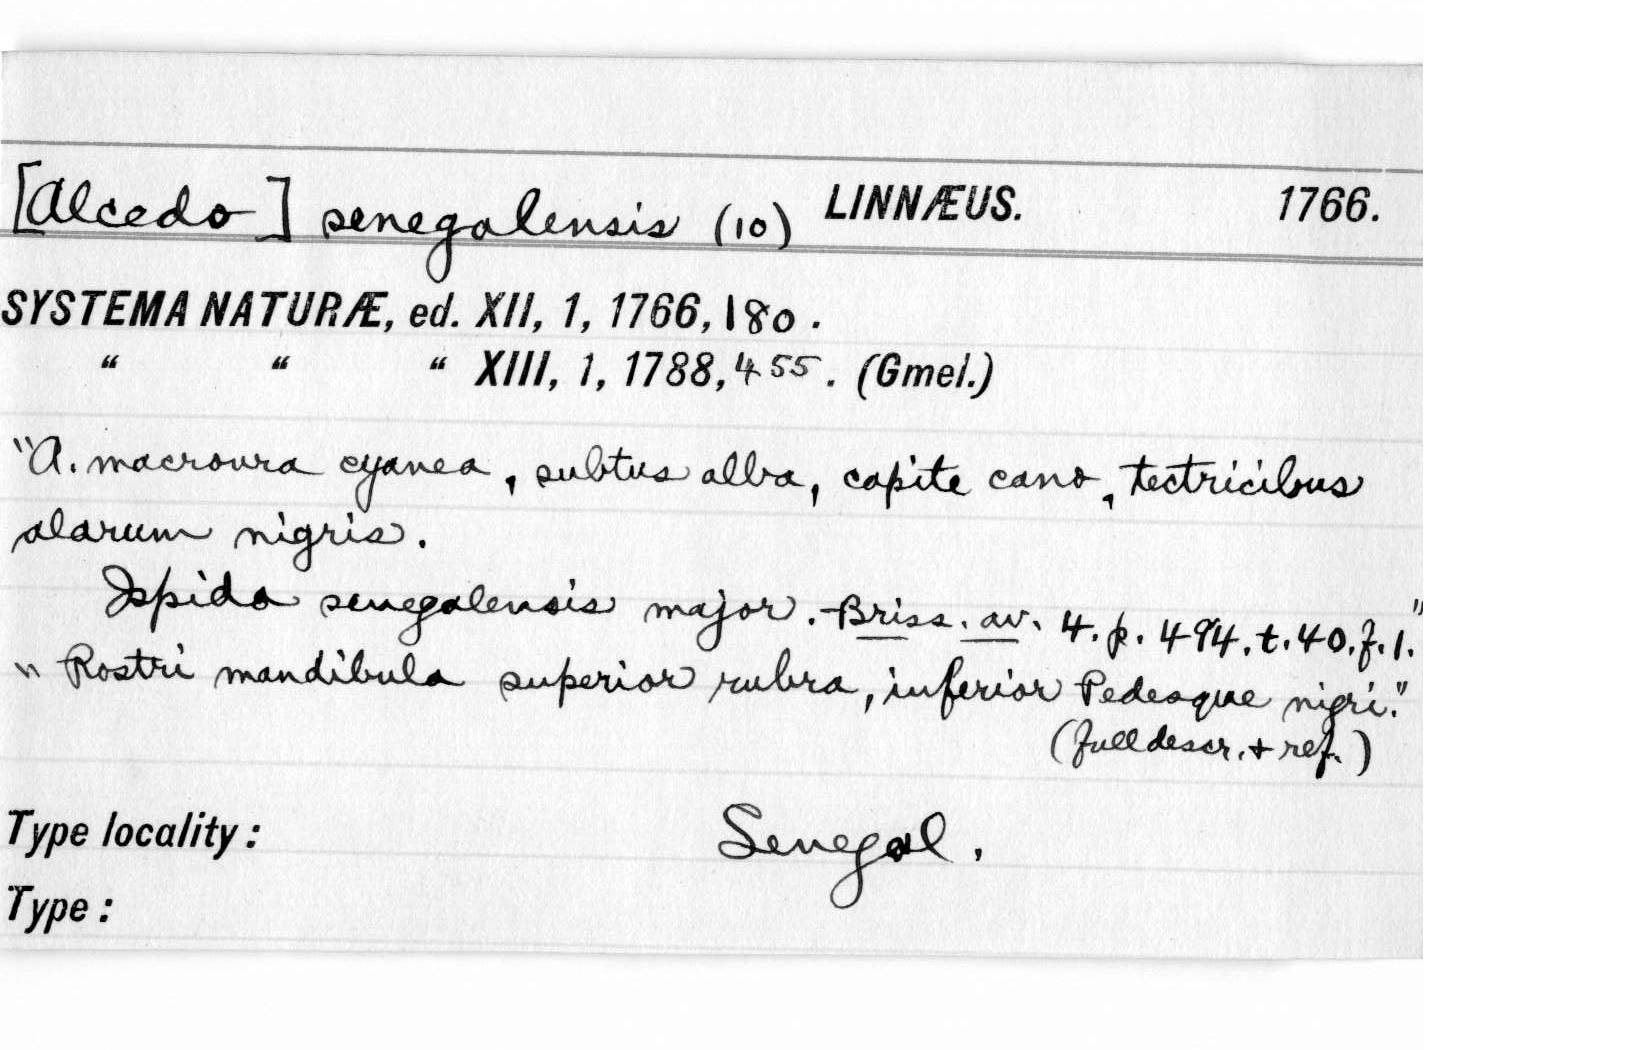 [Alcedo] senegalensis (10) LINNÆUS. 1766.
SYSTEMA NATURÆ, ed. XII, 1, 1766, 180.
“ “ “ XIII, 1, 1788, 455. (Gmel.)
"A. macroura cyanea, subtus alba, capite cano, tectricibus
alarum nigris.
Ispida senegalensis major. Briss. av. 4. p. 494. t. 40. f. 1."
" Rostri mandibula superior rubra, inferior Pedesque nigri."
(full descr. + ref.)
Type locality: Senegal.
Type: